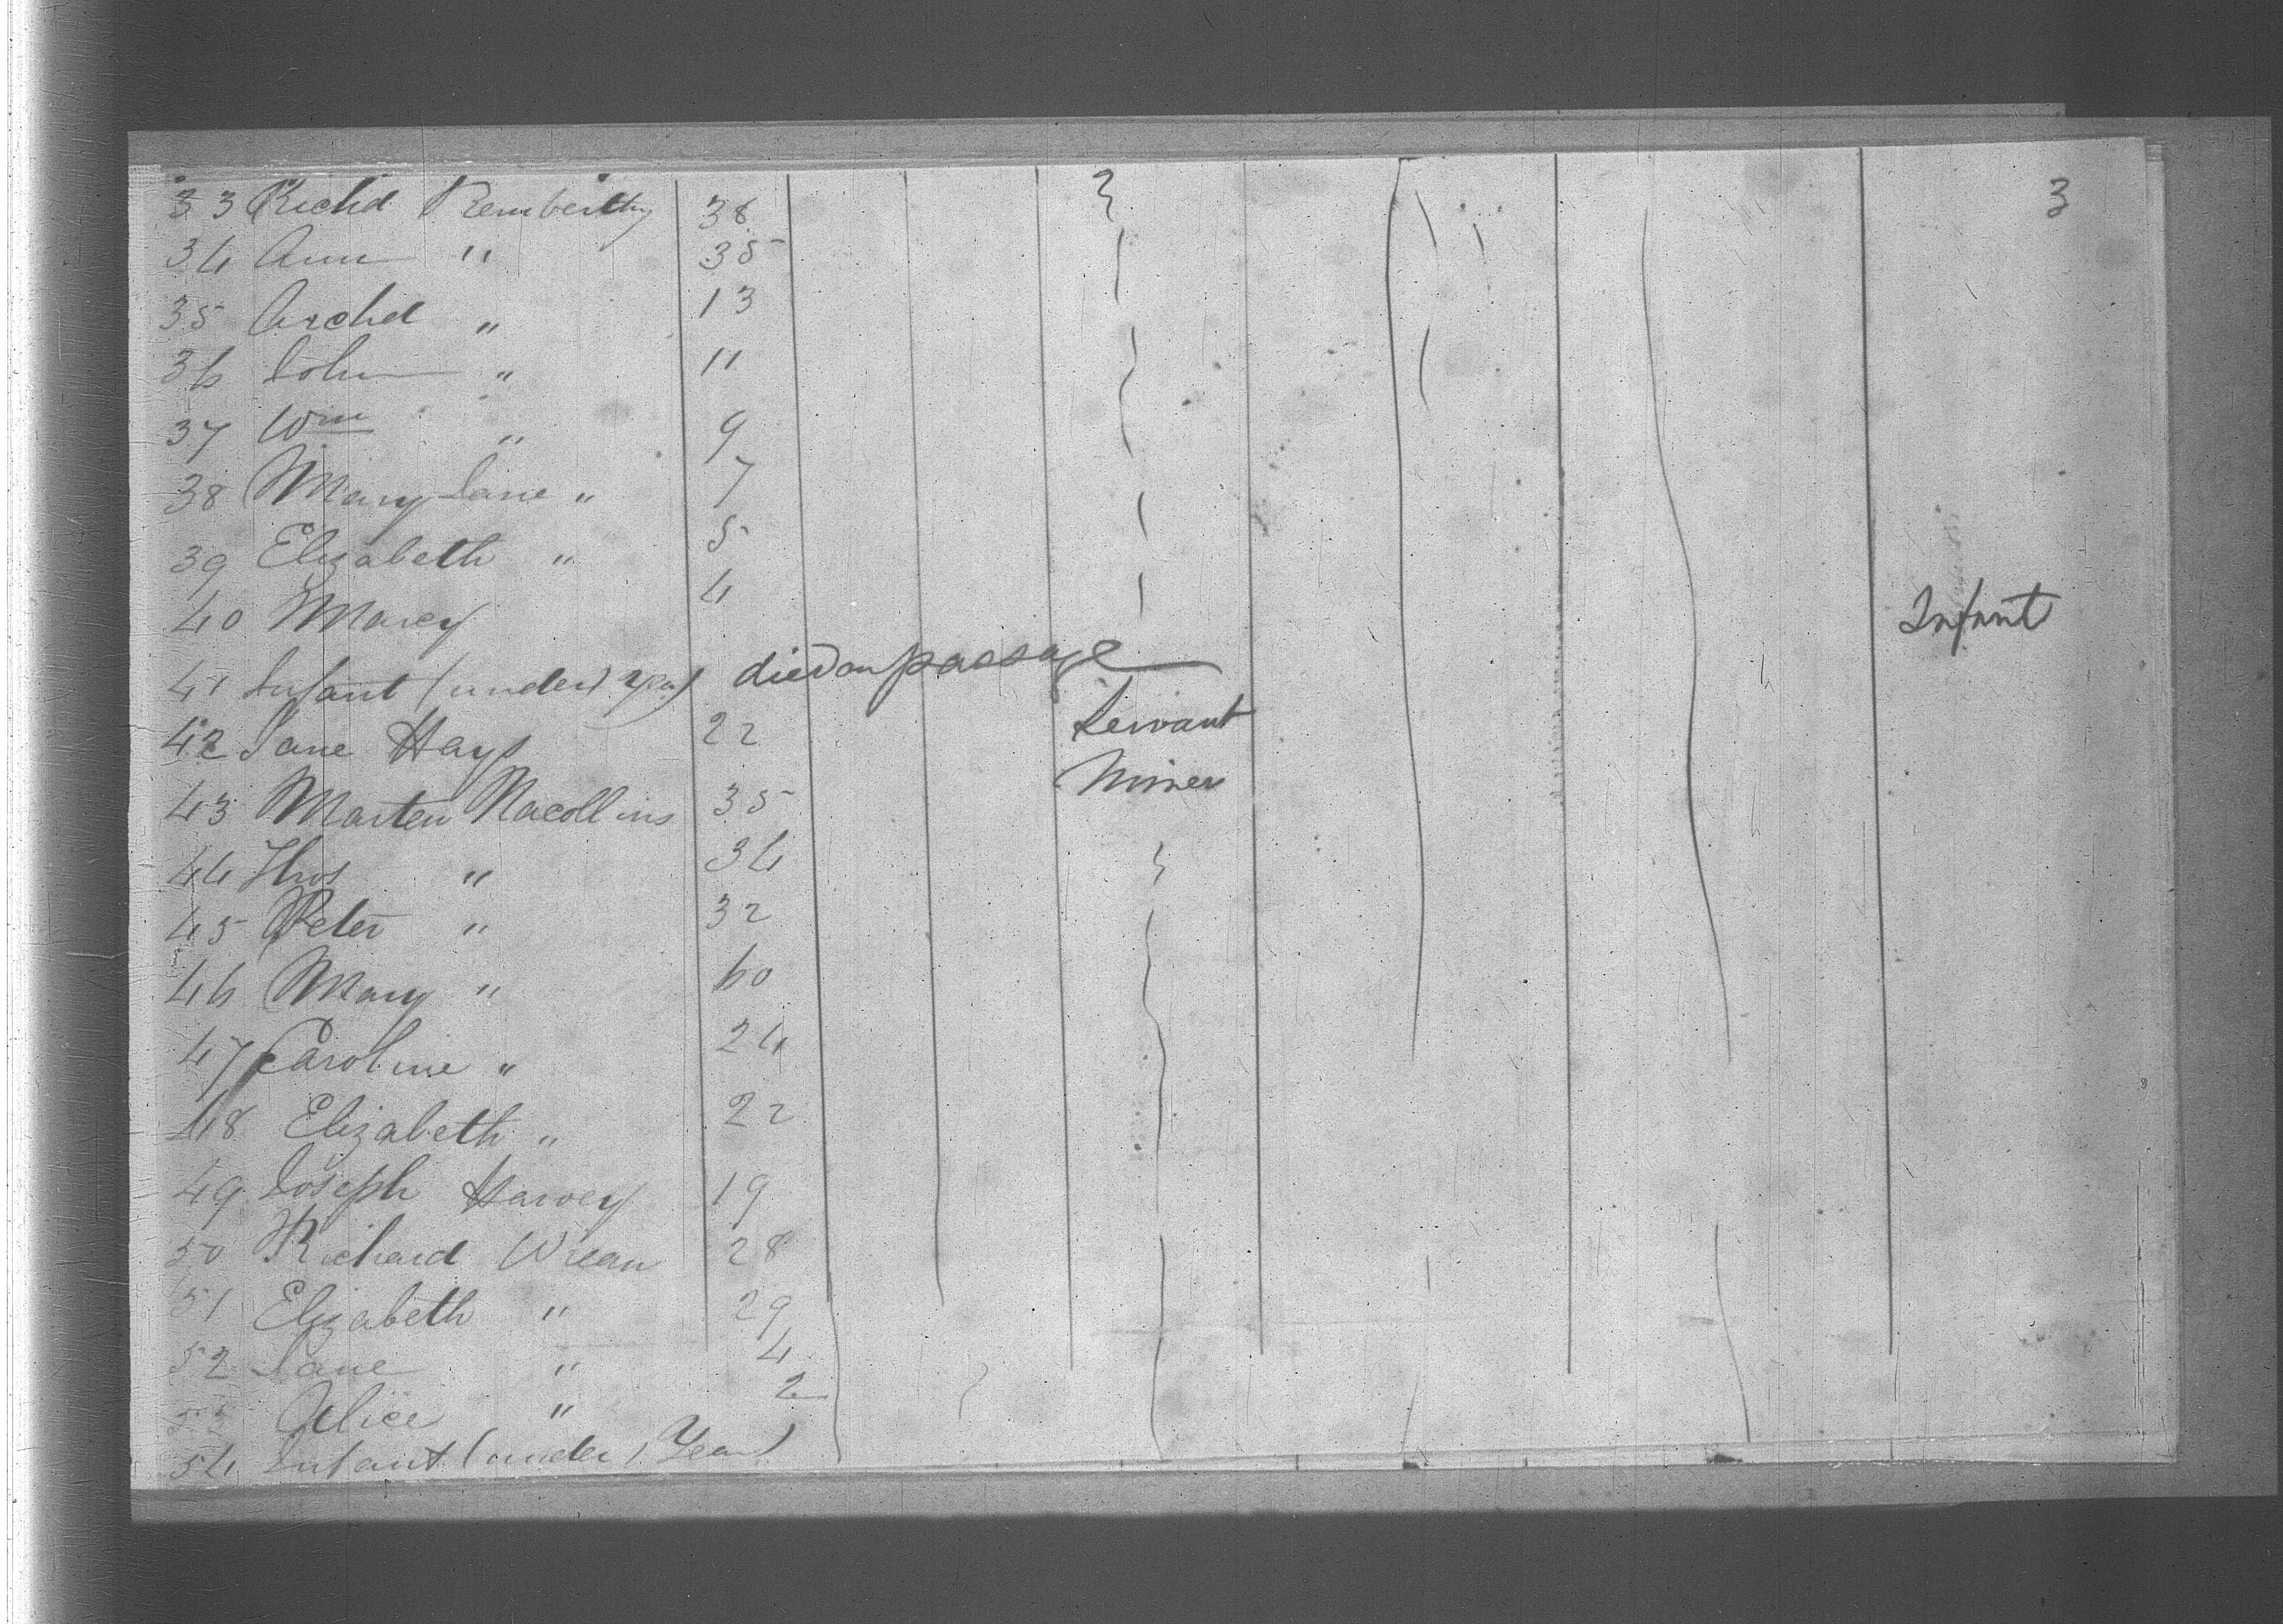 3
33 Richd Pemberthy 38
34 Ann " 35
35 Archd " 13
36 John " 11
37 Wm " 9
38 Mary Jane " 7
39 Elizabeth " 5
40 Marey 4
Infant
41 Infant (under 1 year) died on passage
42 Jane Hays 22 Servant
43 Marten Nacollins 35 Miner
44 Thos " 34
45 Peter " 32
46 Mary " 60
47 Caroline " 24
48 Elizabeth " 22
49 Joseph Harvey 19
50 Richard Wilean 28
51 Elizabeth " 29
52 Jane " 4
53 Alice " 2
54 Infant (under 1 Year)